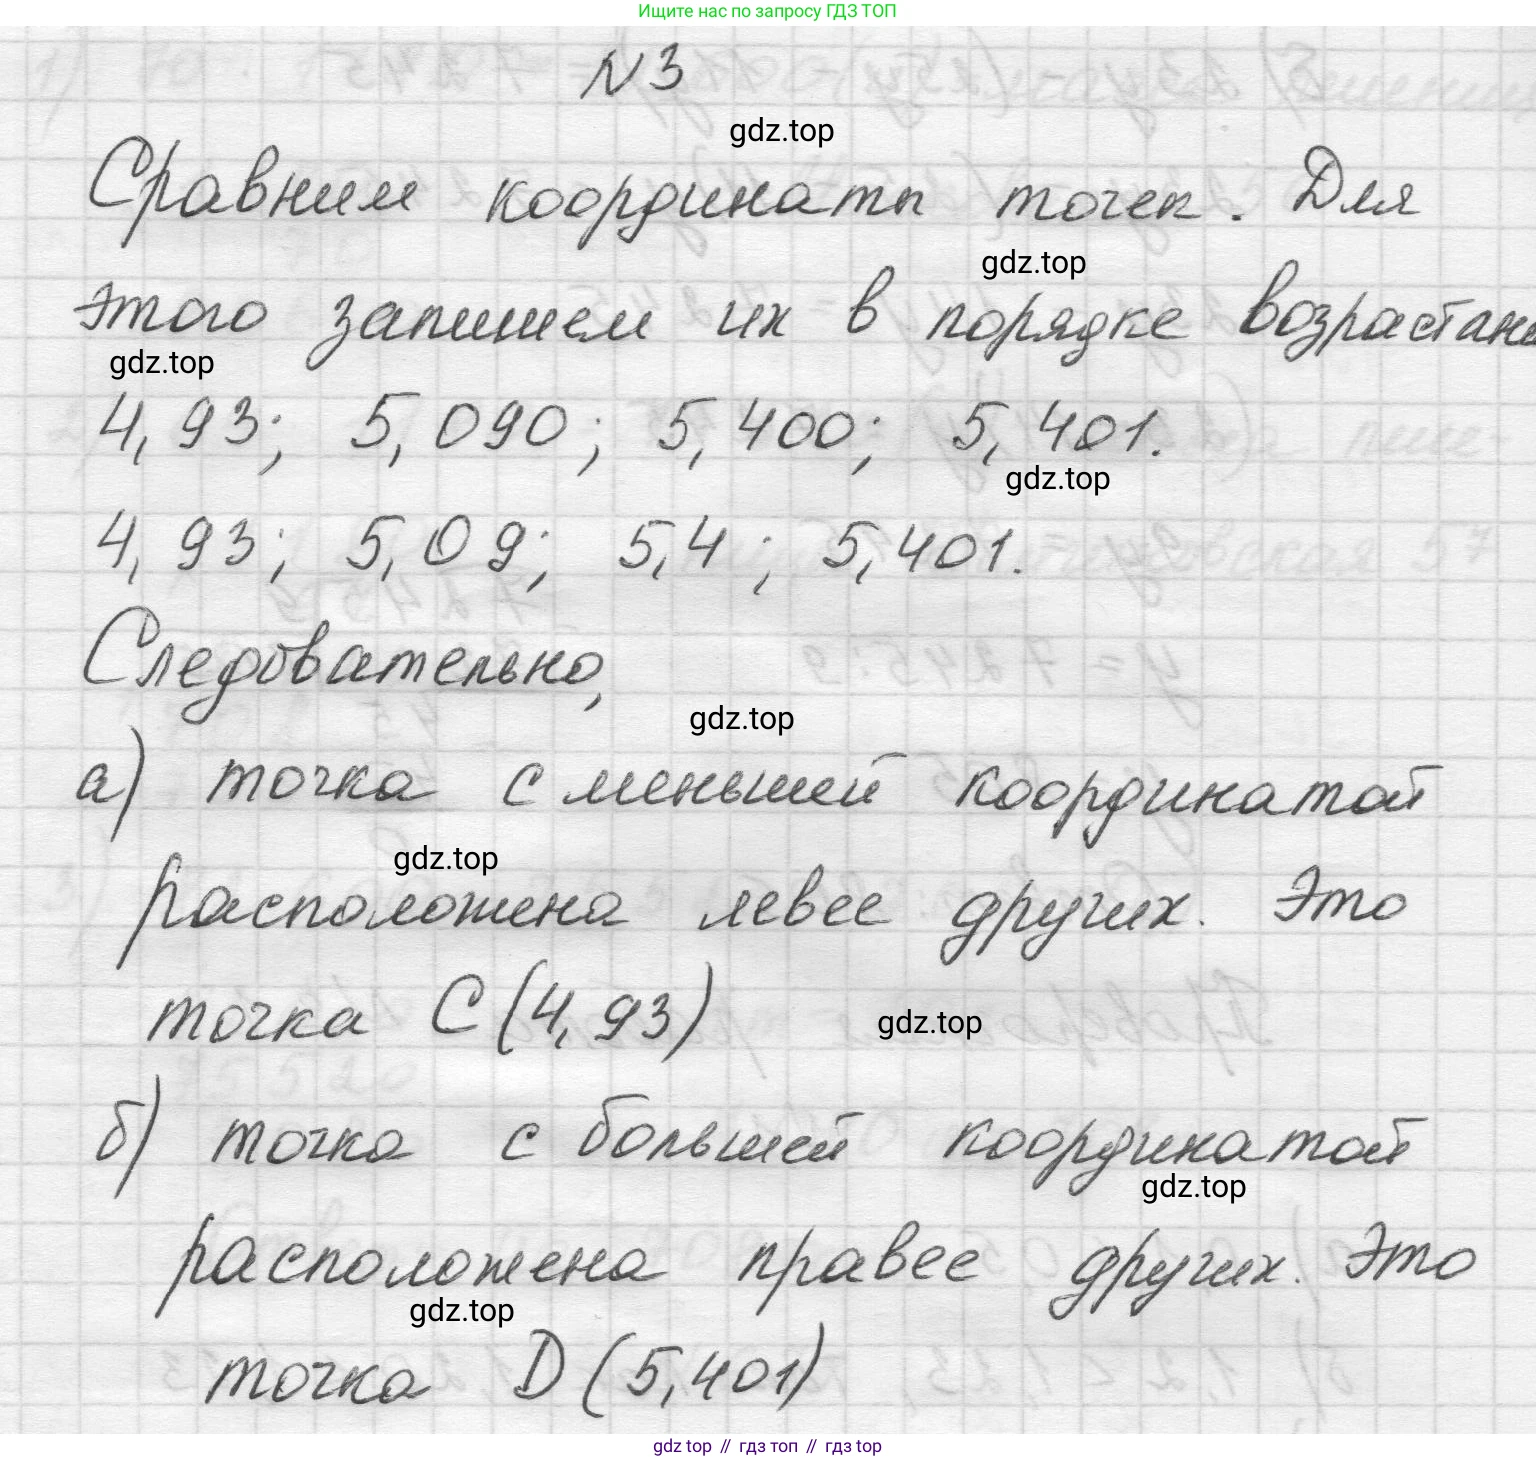 Ищите нас по запросу ГДЗ ТОП
N3
gdz.top
Сравним координаты точек. Для
gdz.top
этого запишем их в порядке возрастани
gdz.top
4,93; 5,090; 5,400; 5,401.
gdz.top
4,93; 5,09; 5,4; 5,401.
Следовательно,
gdz.top
а) точка с меньшей координатой
gdz.top
расположена левее других. Это
точка C(4,93)
gdz.top
б) точка с большей координатой
gdz.top
расположена правее других. Это
gdz.top
точка D(5,401)
gdz top // гдз топ // гдз top